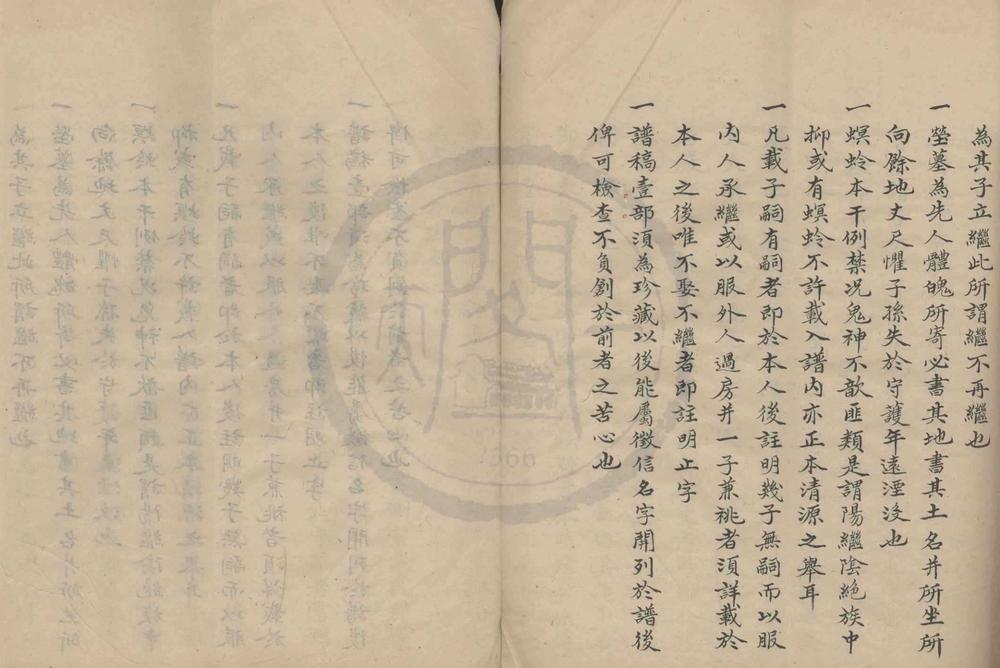 為其子立繼此所謂繼不再繼也
一塋墓為先人體魄所寄必書其地書其土名并所坐所
向餘地丈尺懼子孫失於守護年遠湮沒也
一螟蛉本干例禁况鬼神不歆匪類是謂陽繼陰絕族中
抑或有螟蛉不許載入譜內亦正本清源之舉耳
一凡載子嗣有嗣者即於本人後註明幾子無嗣而以服
內人承繼或以服外人過房并一子兼祧者須詳載於
本人之後唯不娶不繼者即註明止字
一譜稿壹部須為珍藏以後能屬徵信名字開列於譜後
俾可檢查不負創於前者之苦心也